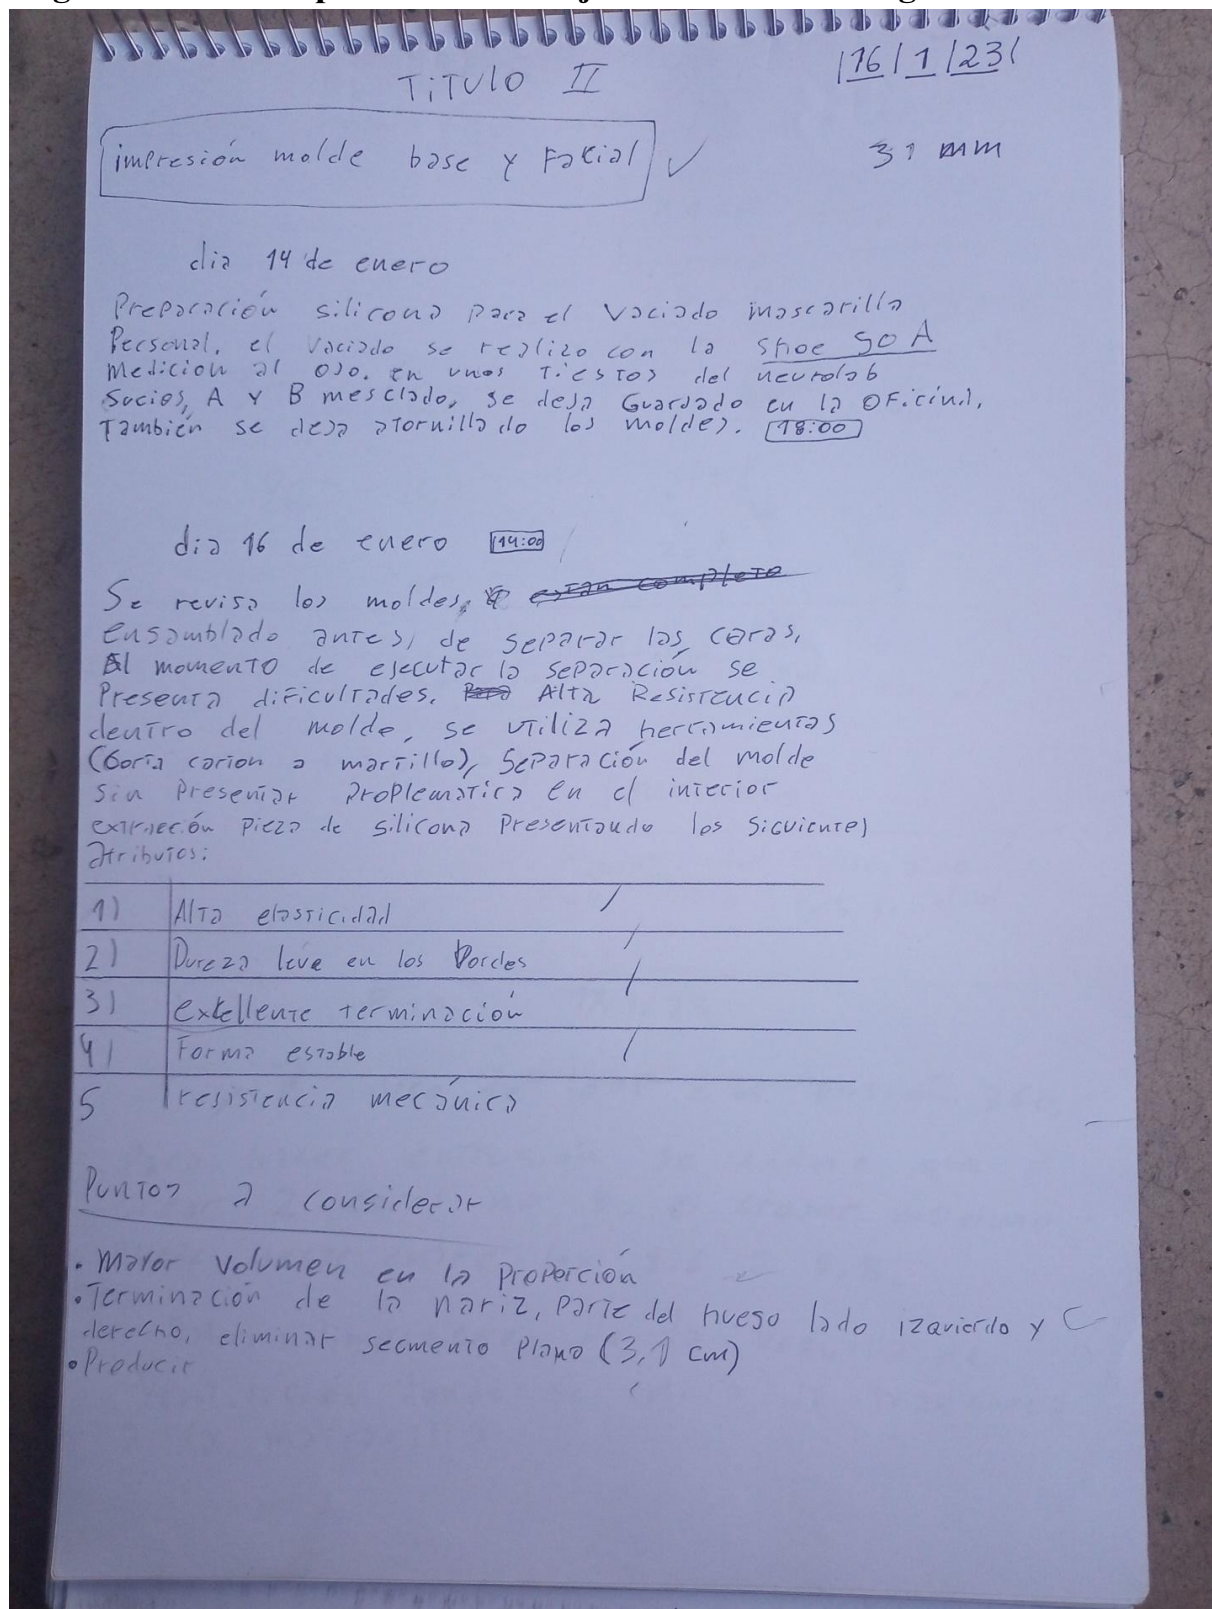 TiTUlO II
|16|1|23|
impresión molde base y Facial
31 mm
dia 14 de enero
Preparación silicona para el Vaciado mascarilla
Personal, el Vaciado se realizo con la Shoe 50 A
Medicion al ojo. en unos Tiestos del neurolab
Sucios, A y B mesclado, se deja Guardado en la OFicina,
También se deja atornillado los moldes. 18:00
dia 16 de enero 14:00
Se revisa los moldes, estan completo
ensamblado antes, de separar las caras,
Al momento de ejecutar la separación se
Presenta dificultades. Alta Resistencia
dentro del molde, se utiliza herramientas
carton a martillo), Separación del molde
sin Presentar Proplematica en el interior
extracción Pieza de silicona Presentando los Siguientes
atributos:
1) Alta elasticidad
2) Dureza leve en los Bordes
3) excellente terminación
4) Forma estable
5 resistencia mecánica
Puntos a considerar
• Mayor Volumen en la Proporción
• Terminación de la nariz, Parte del hueso lado izquierdo y
derecho, eliminar segmento Plano (3,1 cm)
• Producir